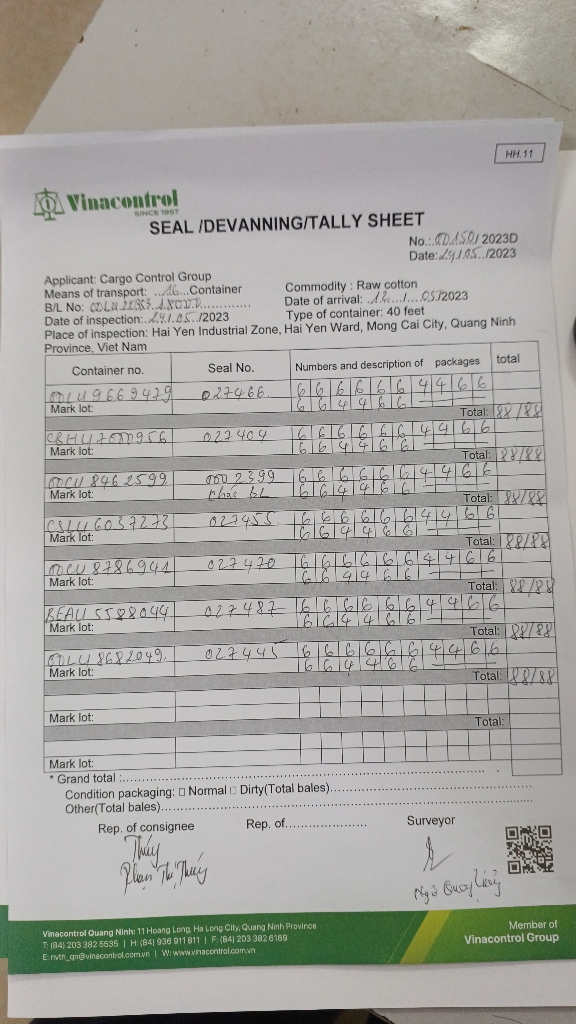 HH.11
Vinacontrol
SINCE 1957
SEAL /DEVANNING/TALLY SHEET
No.: /2023D
Date: 24/05../2023
Applicant: Cargo Control Group
Means of transport: ..16...Container
Commodity : Raw cotton
B/L No:
Date of arrival: .12..../....05/2023
Date of inspection: 24/.05../2023
Type of container: 40 feet
Place of inspection: Hai Yen Industrial Zone, Hai Yen Ward, Mong Cai City, Quang Ninh
Province, Viet Nam
Container no. Seal No. Numbers and description of packages total
OOLU9669479 027466 6 6 6 6 6 6 4 4 6 6
Mark lot: 6 6 4 4 6 6
Total: 88/88
CBHU7000956 027404 6 6 6 6 6 6 4 4 6 6
Mark lot: 6 6 4 4 6 6
Total: 88/88
OOCU 8462599 0002399 6 6 6 6 6 6 4 4 6 6
Mark lot: khác BL 6 6 4 4 6 6
Total: 88/88
CSLU 6037273 027455 6 6 6 6 6 6 4 4 6 6
Mark lot: 6 6 4 4 6 6
Total: 88/88
OOCU 8786941 027470 6 6 6 6 6 6 4 4 6 6
Mark lot: 6 6 4 4 6 6
Total: 88/88
BEAU 5588044 027487 6 6 6 6 6 6 4 4 6 6
Mark lot: 6 6 4 4 6 6
Total: 88/88
OOLU 8682049. 027445 6 6 6 6 6 6 4 4 6 6
Mark lot: 6 6 4 4 6 6
Total: 88/88
Mark lot:
Total:
Mark lot:
* Grand total :
Condition packaging: □ Normal □ Dirty(Total bales)
Other(Total bales)
Rep. of consignee Rep. of Surveyor
Thúy
Phạm Thị Thúy
Ngô Quang
Vinacontrol Quang Ninh: 11 Hoang Long, Ha Long City, Quang Ninh Province
T: (84) 203 382 5535 | H: (84) 936 911 811 | F: (84) 203 382 6169
E: nvth_qn@vinacontrol.com.vn | W: www.vinacontrol.com.vn
Member of
Vinacontrol Group